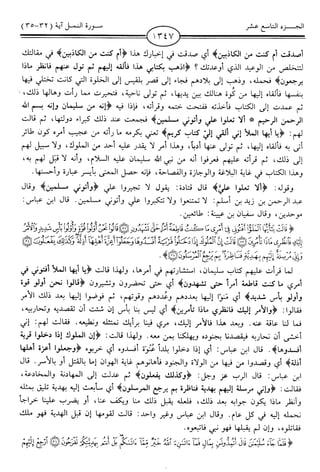 الجزء التاسع عشر
١٣٤٧
سورة النمل آية (٣٢-٣٥)
أصدقت أم كنت من الكاذبين﴾ أي صدقت في إخبارك هذا ﴿أم كنت من الكاذبين﴾ في مقالتك
لتتخلص من الوعيد الذي أوعدتك؟ ﴿اذهب بكتابي هذا فألقه إليهم ثم تول عنهم فانظر ماذا
يرجعون﴾ فحمله، وذهب إلى بلادهم فجاء إلى قصر بلقيس إلى الخلوة التي كانت تختلي فيها
بنفسها فألقاه إليها من كوة هنالك بين يديها، ثم تولى ناحية، فتحيرت مما رأت وهالها ذلك،
ثم عمدت إلى الكتاب فأخذته ففتحت ختمه وقرأته، فإذا فيه ﴿إنه من سليمان وإنه بسم الله
الرحمن الرحيم * ألا تعلوا علي وأتوني مسلمين﴾ فجمعت عند ذلك كبراء دولتها، ثم قالت
لهم: ﴿يا أيها الملأ إني ألقي إليّ كتاب كريم﴾ تعني بكرمه ما رأته من عجيب أمره كون طائر
أتى به فألقاه إليها، ثم تولى عنها أدباً، وهذا أمر لا يقدر عليه أحد من الملوك، ولا سبيل لهم
إلى ذلك، ثم قرأته عليهم فعرفوا أنه من نبي الله سليمان عليه السلام، وأنه لا قبل لهم به،
وهذا الكتاب في غاية البلاغة والوجازة والفصاحة، فإنه حصل المعنى بأيسر عبارة وأحسنها.
وقوله: ﴿ألا تعلوا عليّ﴾ قال قتادة: يقول لا تجبروا علي ﴿وأتوني مسلمين﴾ وقال
عبد الرحمن بن زيد بن أسلم: لا تمتنعوا ولا تتكبروا علي وأتوني مسلمين. قال ابن عباس:
موحدين، وقال سفيان بن عيينة: طائعين.
لما قرأت عليهم كتاب سليمان، استشارتهم في أمرها، ولهذا قالت ﴿يا أيها الملأ أفتوني في
أمري ما كنت قاطعة أمراً حتى تشهدون﴾ أي حتى تحضرون وتشيرون ﴿قالوا نحن أولو قوة
وأولو بأس شديد﴾ أي منوا إليها بعددهم وعُددهم وقوتهم، ثم فوضوا إليها بعد ذلك الأمر
فقالوا: ﴿والأمر إليك فانظري ماذا تأمرين﴾ أي ليس بنا بأس إن شئت أن تقصديه وتحاربيه،
فما لنا عاقة عنه. وبعد هذا فالأمر إليك، مري فينا برأيك نمتثله ونطيعه. فقالت لهم: إني
أخشى أن نحاربه فيقصدنا بجنوده ويهلكنا بمن معه. ولهذا قالت: ﴿إن الملوك إذا دخلوا قرية
أفسدوها﴾. قال ابن عباس: أي إذا دخلوا بلداً عنوة أفسدوه أي خربوه ﴿وجعلوا أعزة أهلها
أذلة﴾ أي وقصدوا من فيها من الولاة والجنود فأهانوهم غاية الهوان إما بالقتل أو بالأسر. قال
ابن عباس: قال الرب عز وجل: ﴿وكذلك يفعلون﴾ ثم عدلت إلى المهادنة والمخادعة،
فقالت: ﴿وإني مرسلة إليهم بهدية فناظرة بم يرجع المرسلون﴾ أي سأبعث إليه بهدية تليق بمثله
وأنظر ماذا يكون جوابه بعد ذلك، فلعله يقبل ذلك منا ويكف عنا، أو يضرب علينا خراجاً
نحمله إليه في كل عام. وقال ابن عباس وغير واحد: قالت لقومها إن قبل الهدية فهو ملك
فقاتلوه، وإن لم يقبلها فهو نبي فاتبعوه.